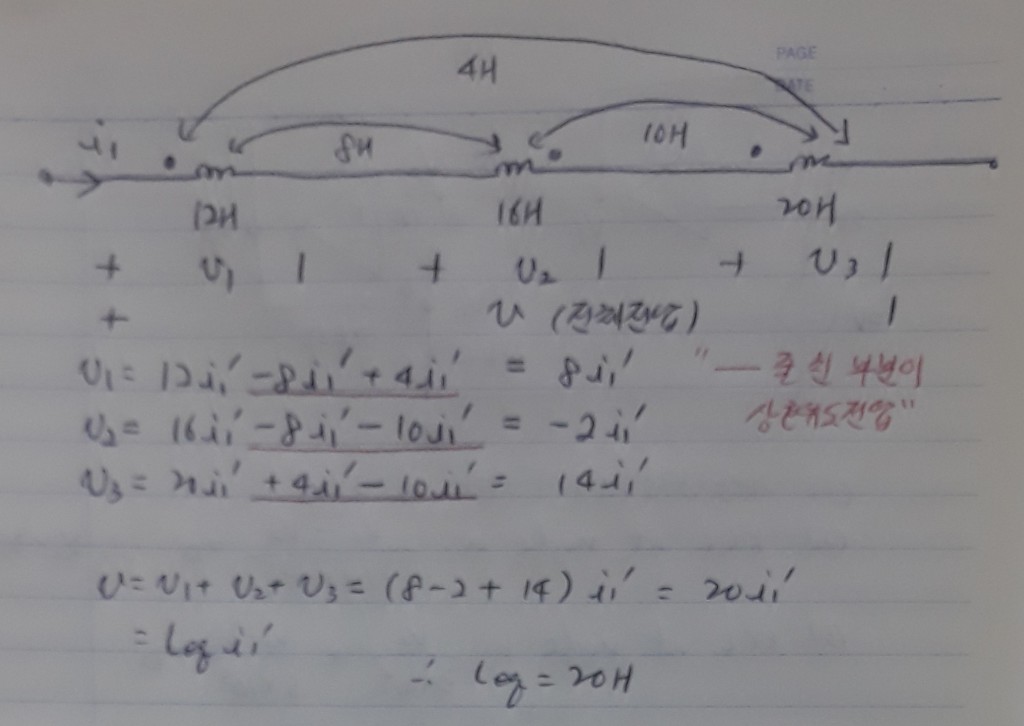 PAGE
DATE
4H
i₁ 8H 10H
12H 16H 20H
+ v₁ | + v₂ | + v₃ |
+ v (전체전압) |
v₁ = 12i₁′ -8i₁′ + 4i₁′ = 8i₁′ "— 줄 친 부분이
v₂ = 16i₁′ -8i₁′ - 10i₁′ = -2i₁′ 상호유도전압"
v₃ = 20i₁′ +4i₁′ - 10i₁′ = 14i₁′
v = v₁ + v₂ + v₃ = (8-2+14) i₁′ = 20i₁′
= Leq i₁′
∴ Leq = 20H